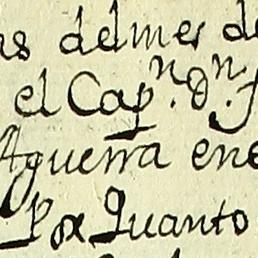 as del mes de
el Cap.n D.n J
Aguerra ene
Por Quanto